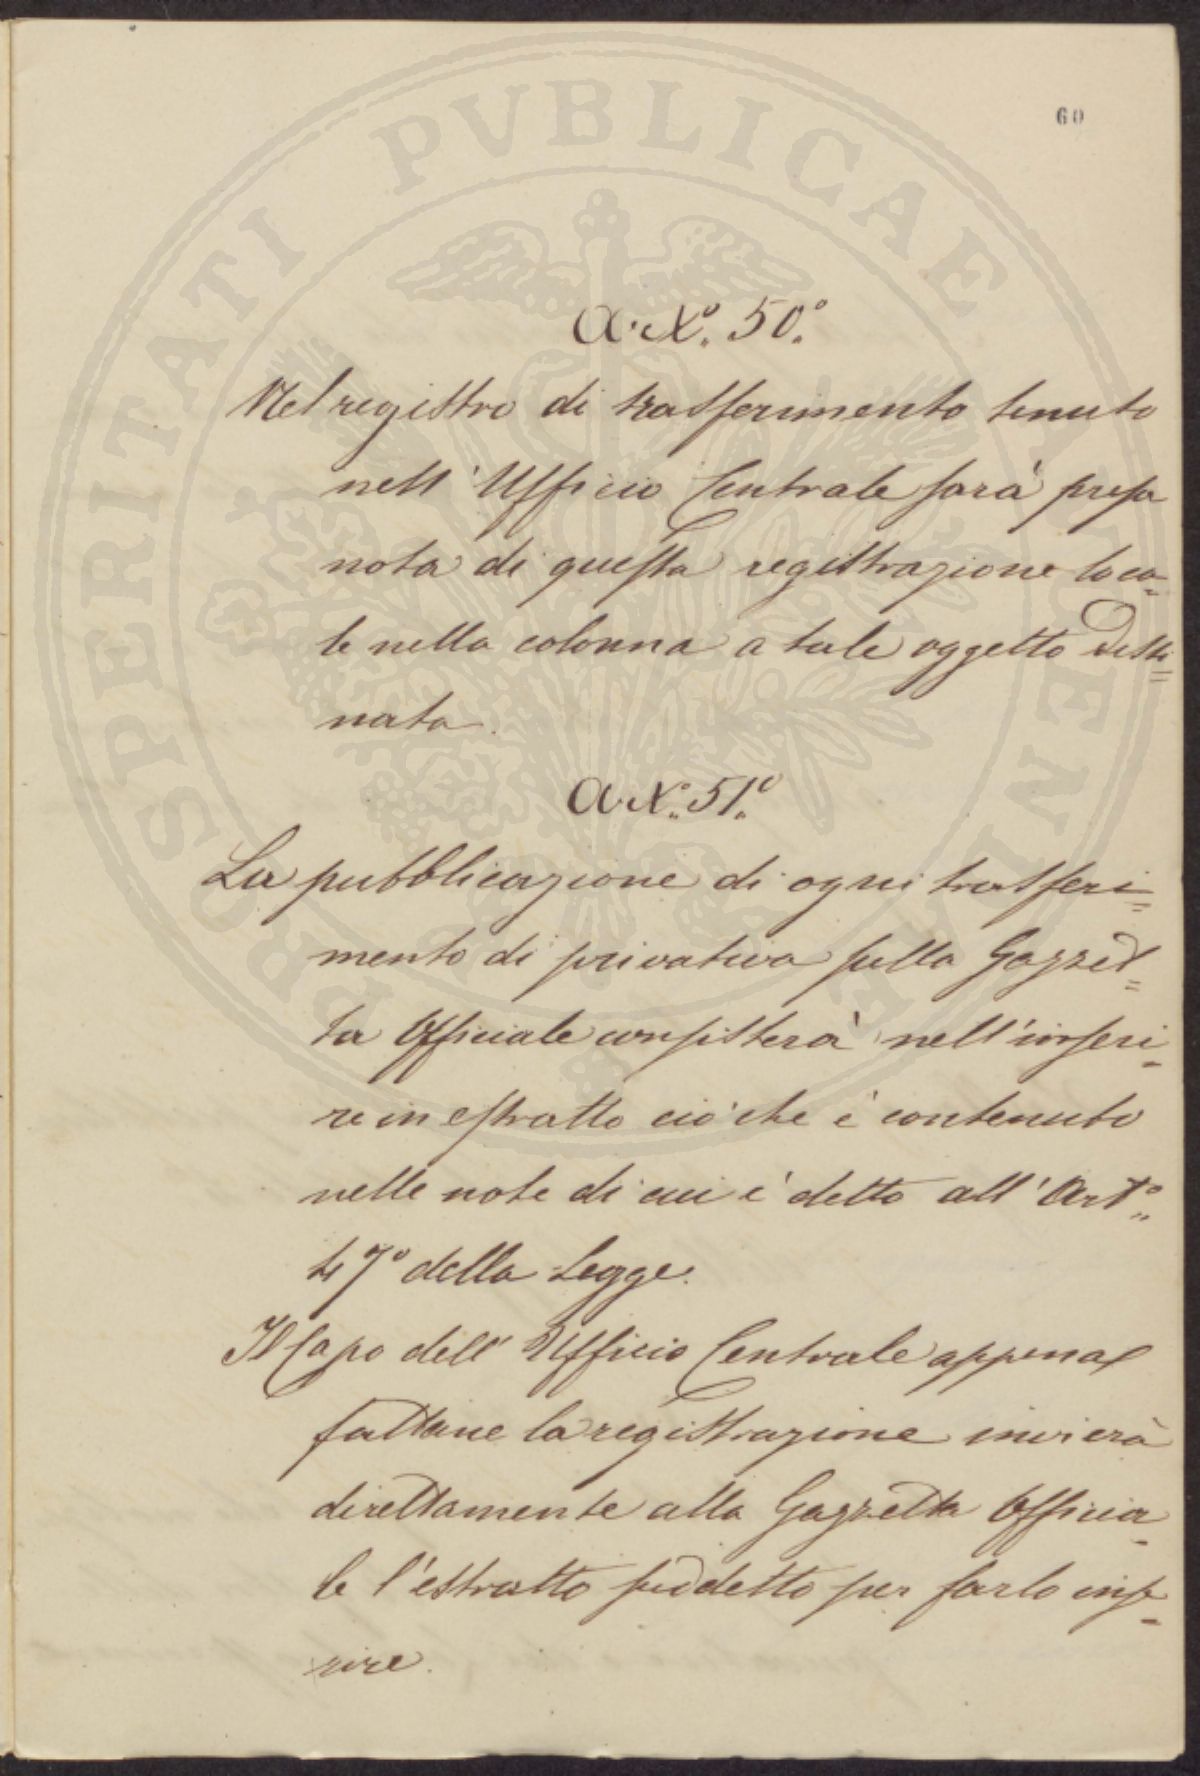 60
PROSPERITATI PUBLICAE AUGENDAE
Art.° 50.°
Nel registro di trasferimento tenuto
nell'Ufficio Centrale sarà presa
nota di questa registrazione loca-
le nella colonna a tale oggetto desti=
nata.
Art.° 51.°
La pubblicazione di ogni trasferi=
mento di privativa sulla Gazzet=
ta Officiale consisterà nell'inseri-
re in estratto ciò che è contenuto
nelle note di cui è detto all'Art.°
47° della Legge.
Il Capo dell'Ufficio Centrale appena
fattane la registrazione invierà
direttamente alla Gazzetta Officia-
le l'estratto suddetto per farlo inse-
rire.